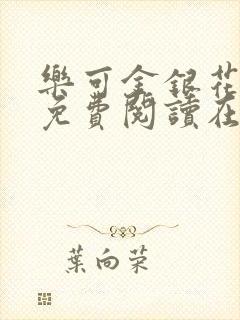 樂可金銀花
免費閱讀在
葉向荣